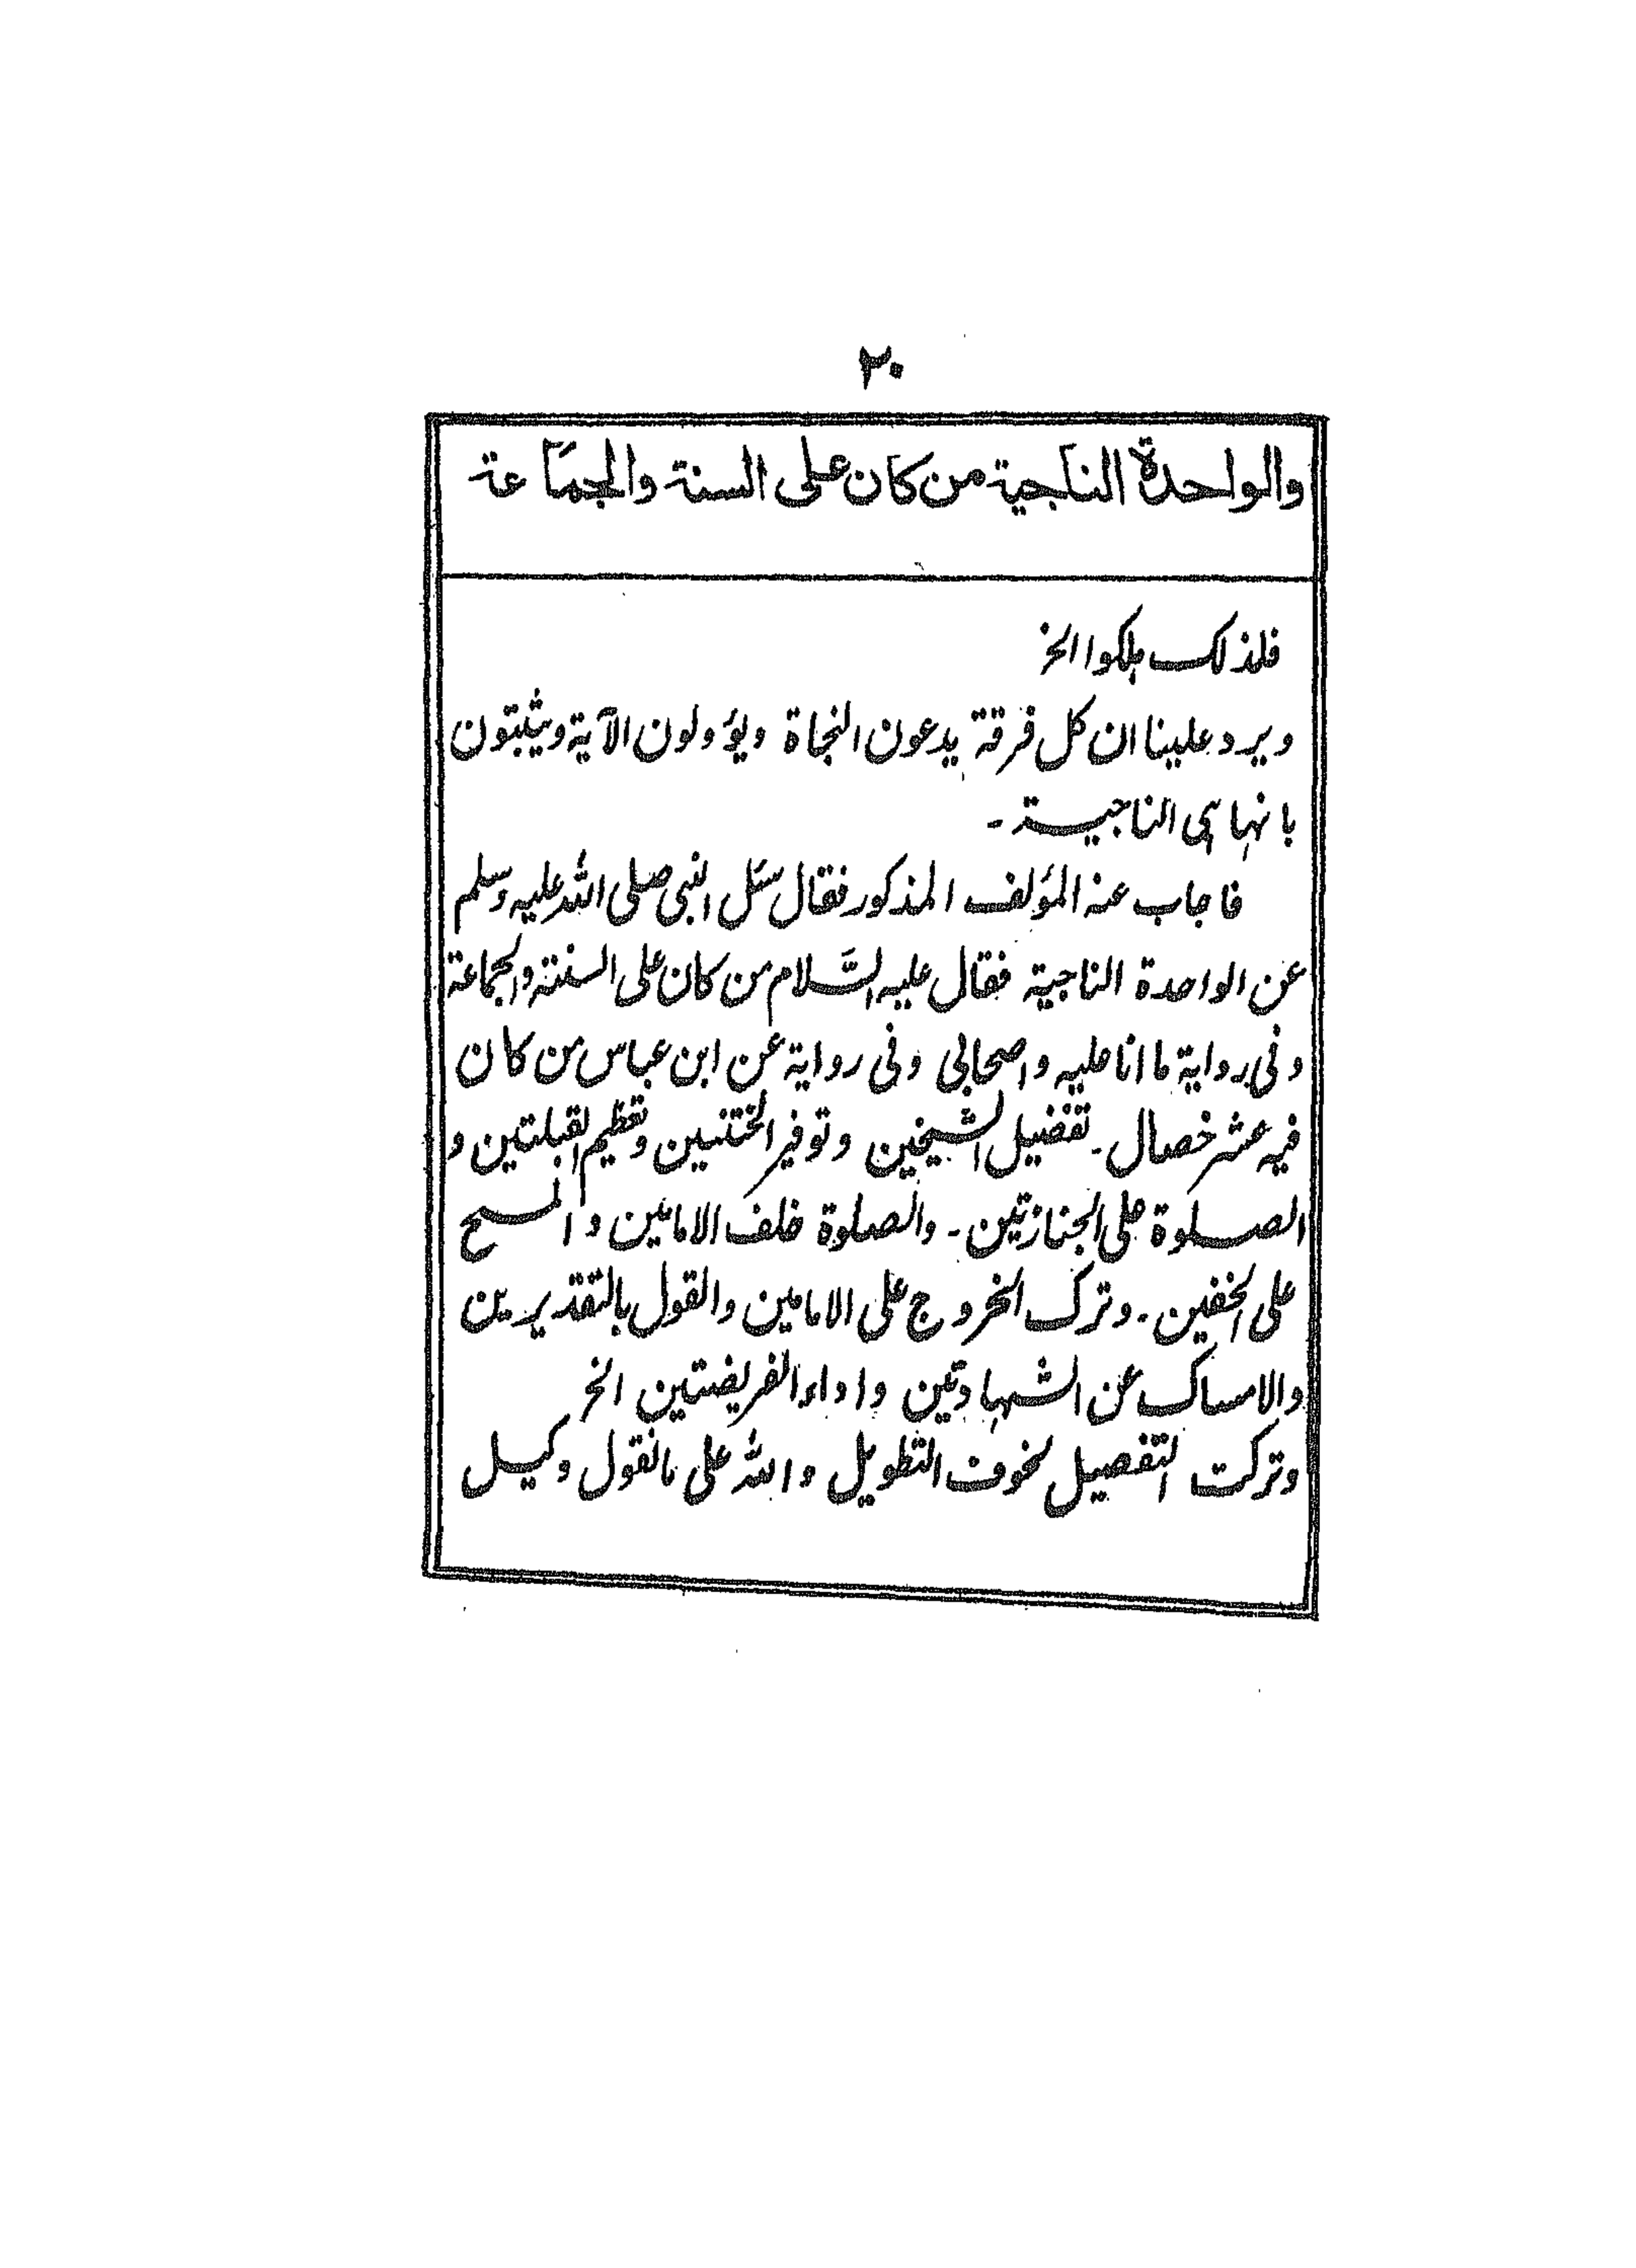 ٢٠
والواحدة الناجية من كان على السنة والجمَاعة
فلذلك هلكوا الخ
ويرد علينا ان كل فرقة يدعون النجاة ويؤولون الآية ويثبتون
بانہا ہی الناجیة ۔
فاجاب عنه المؤلف المذكور فقال سئل النبی صلی اللہ علیہ وسلم
عن الواحدة الناجية فقال علیہ السَّلام من کان علی السنة والجماعة
وفی رواية ما انا علیہ واصحابی وفی رواية عن ابن عباس من کان
فیہ عشر خصال ۔ تفضيل الشيخين وتوفير الختنين وتعظيم القبلتين و
الصلوة علی الجنازتین ۔ والصلوة خلف الامامین والمسح
علی الخفین ۔ وترک الخروج علی الامامین والقول بالتقدیرین
والامساک عن الشہادتین واداء الفریضتین الخ
وترکت التفصیل لخوف التطویل واللہ علی مانقول وکیل